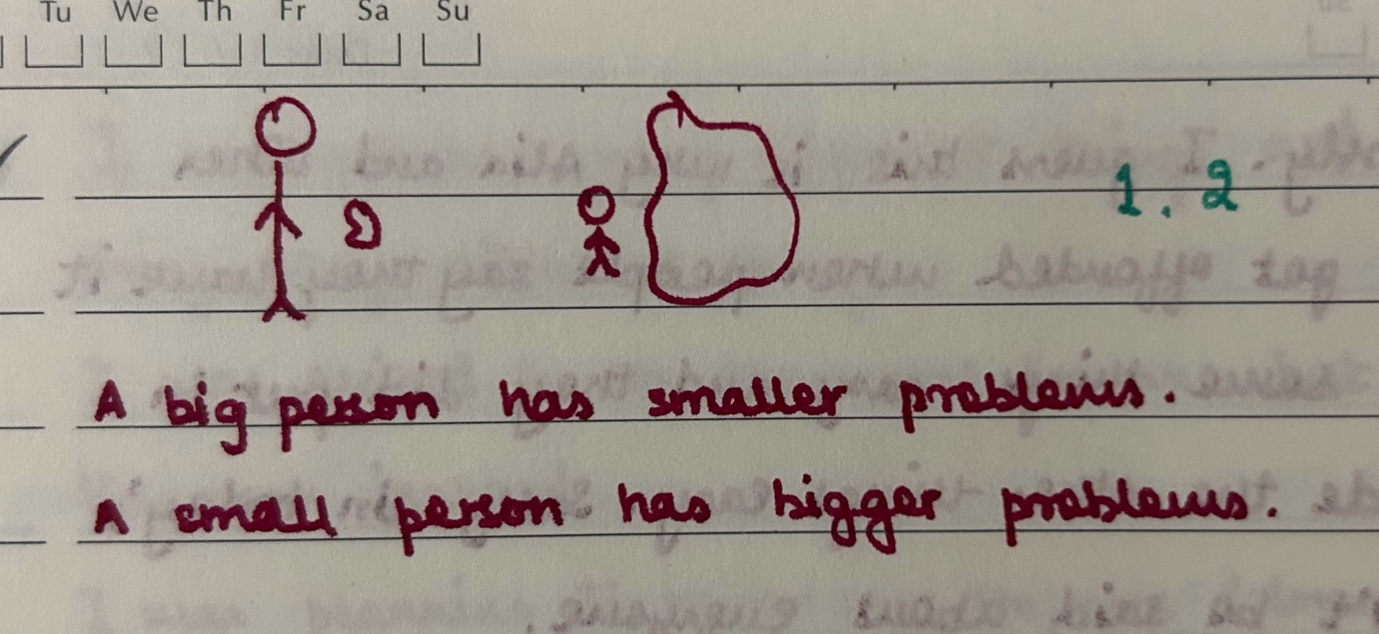 Tu We Th Fr Sa Su
1. 2
A big person has smaller problems.
A small person has bigger problems.